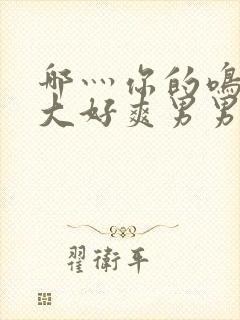 哪灬你的鳴
大好爽男男
翟衛平